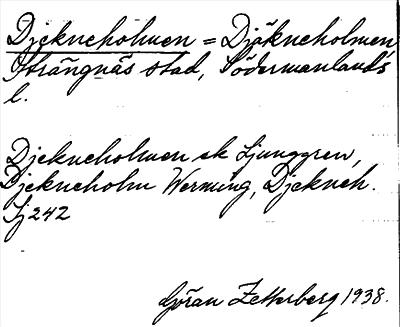 Djekneholmen = Djäkneholmen
Strängnäs stad, Södermanlands
l.
Djekneholmen ek Ljunggren,
Djekneholm Werming, Djekneh.
Lj 242
Göran Zetterberg 1938.